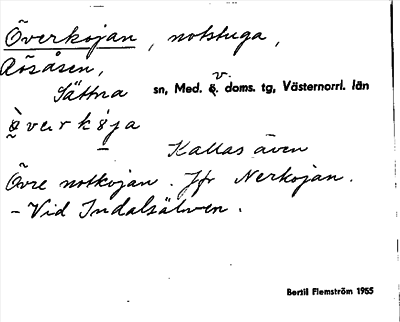 Överkojan, notstuga,
Rösåsen,
Sättna sn, Med. v. doms. tg, Västernorrl. län
ö̀vεrkö́ja
Kallas även
Övre notkojan. Jfr Nerkojan.
- Vid Indalsälven.
Bertil Flemström 1955